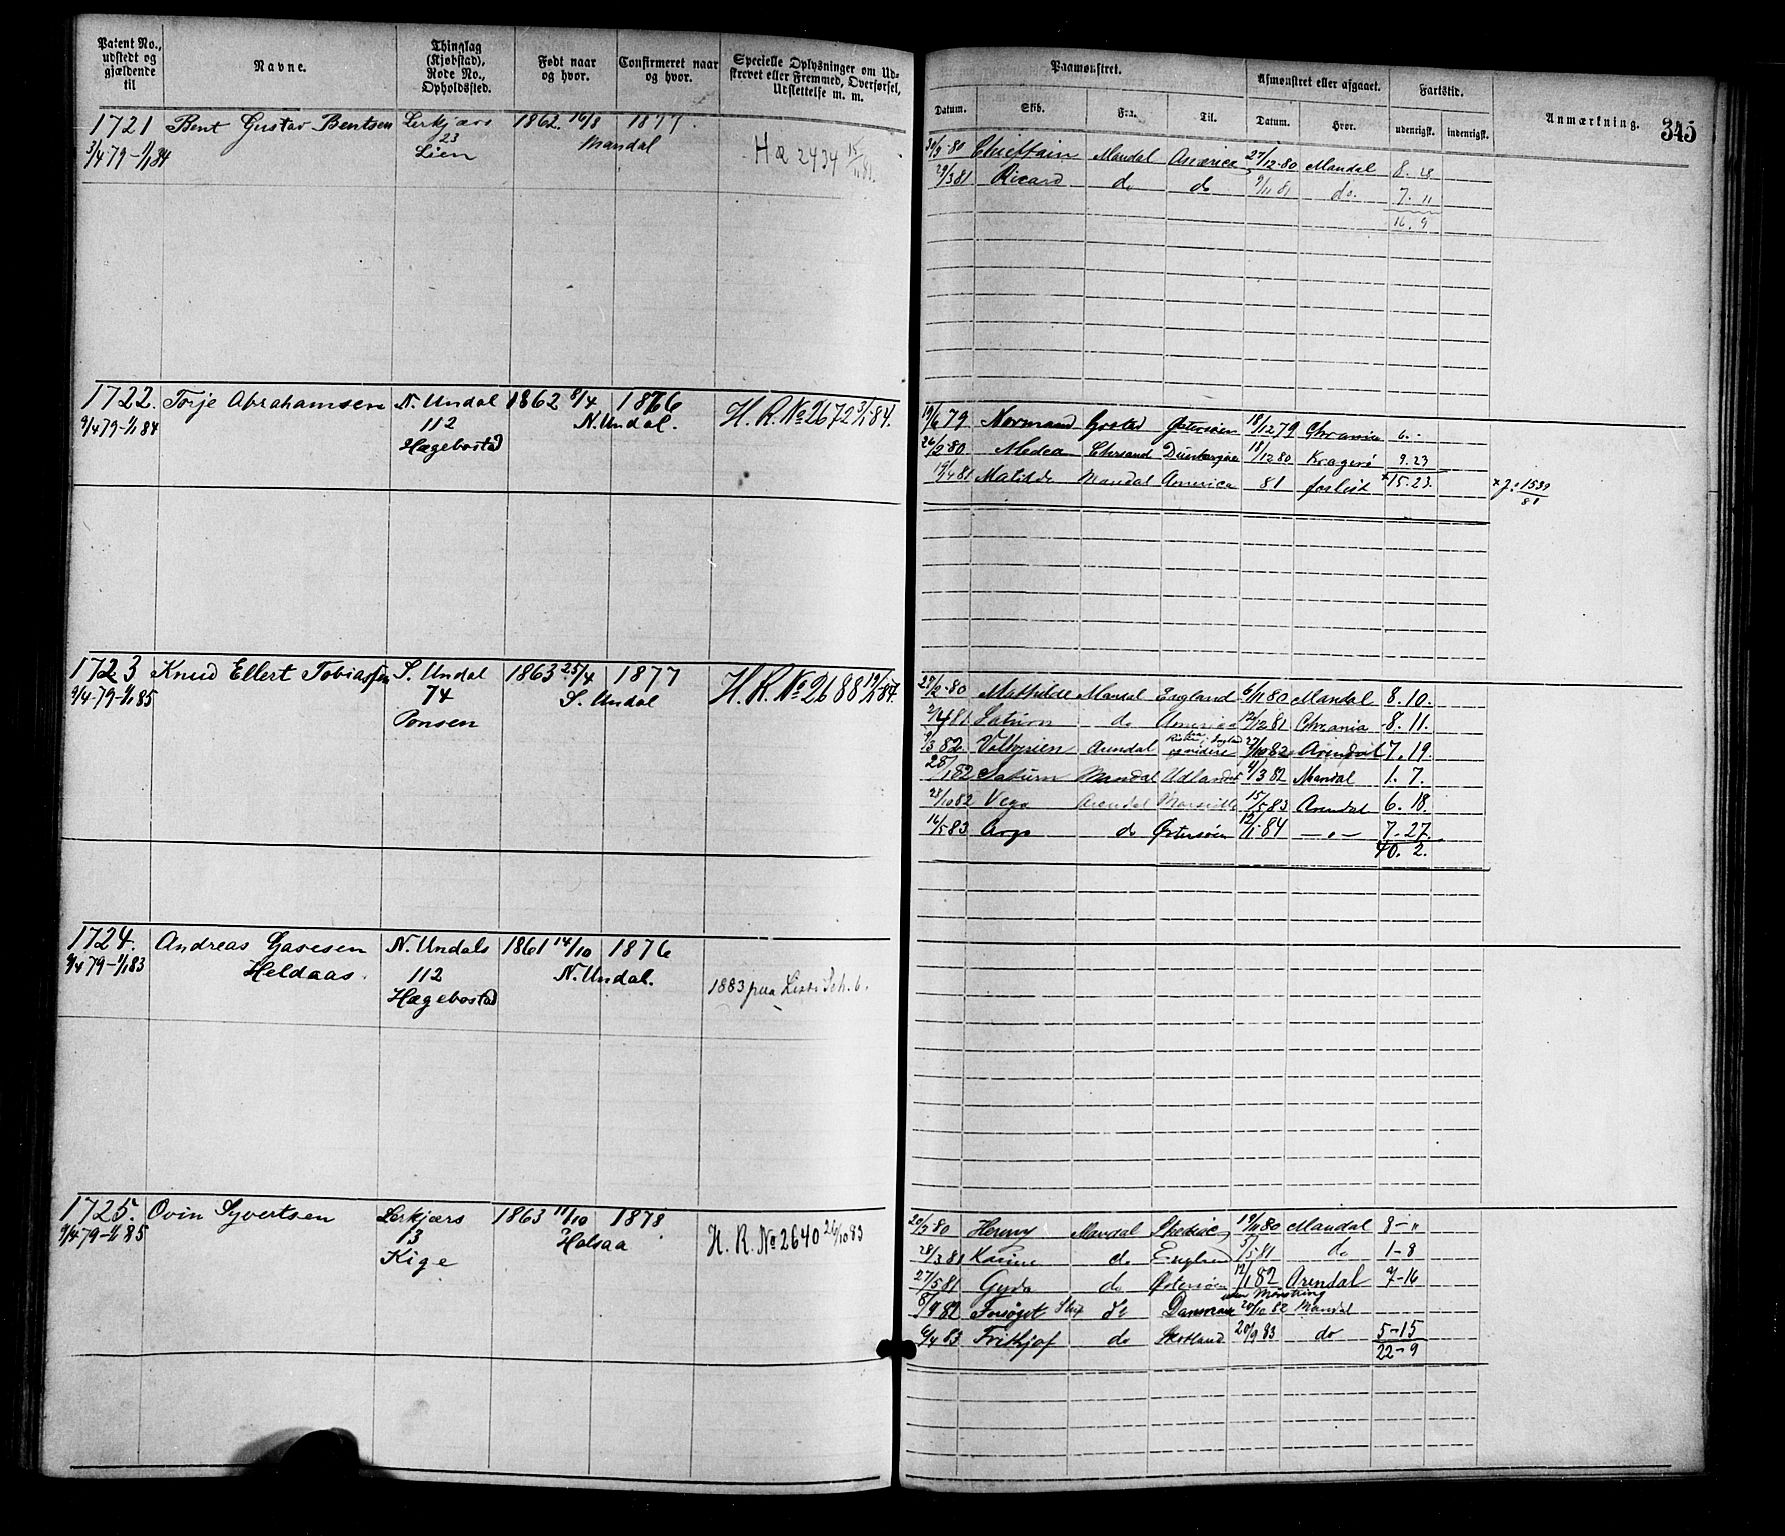 Patent No., udstedt og gjældende til
Navne.
Thinglag (Kjøbstad), Rode No., Opholdssted.
Født naar og hvor.
Confirmeret naar og hvor.
Specielle Oplysninger om Udskrevet eller Fremmed, Overførsel, Udslettelse m. m.
Paamønstret.
Afmønstret eller afgaaet.
Fartstid.
Anmærkning.
345
Datum. Skib. Fra. Til. Datum. Hvor. udenrigsk. indenrigsk.
1721 Bent Gustav Bentsen Lerkjærs 1862 16/8 1877
3/4 79-1/1 84 23 Mandal
Lien
H R 2434 15/11 81.
30/3-80 Chieftain Mandal America 27/12-80 Mandal 8. 28
29/3 81 Ricard do do 9/11 81 do. 7. 11
16. 9
1722. Torje Abrahamsen N. Undal 1862 8/4 1876 H.R.No 2672 3/1-84.
9/4 79-1/1 84 112 N. Undal.
Hægebostad
19/6 79 Normand Østersøen 18/12 79 Chrania 6.-
26/2-80 Medea Chrsand 18/12 80 Kragerø 9.23
19/4 81 Matilde Mandal America 81 forlist 15.23. × J: 1539/81
1723 Knud Ellert Tobiassen S. Undal 1863 25/4 1877 H.R.No 2688 19/1-84.
9/4-79-1/1 85 74 S. Undal
Ponsen
27/2-80 Mathilde Mandal England 6/11 80 Mandal 8. 10.
2/4 81 Saturn do America 12/12 81 Chrania 8. 11.
9/3 82 Valkyrien Arendal videre 27/10 82 Arendal 7. 19.
28/1 82 Saturn Mandal Udlandet 4/3 82 Mandal 1. 7.
28/10 82 Vega Arendal Marseille 15/5 83 Arendal 6. 18.
16/5 83 Argo do Østersøen 12/1-84 -„- 7. 27.
40. 2.
1724. Andreas Gavesen N. Undals 1861 14/10 1876
9/4 79-1/1 83 Heldaas 112 N. Undal.
Hægebostad
1883 paa
1725. Ovin Syvertsen Lerkjærs 1863 11/10 1878 H. R. No 2640 26/10 83
9/4 79-1/1 85 3 Holsaa
Kige
20/3-80 Henny Mandal 19/11 80 Mandal 8-„
28/3 81 Karine do England 5/5 81 do 1-8
27/5 81 Gyda do Østersøen 12/1 82 Arendal 7-16
uden Mønstring
8/9 82 Forsøget do Danmark 20/10 82 Mandal
6/4 83 Frithjof do Skotland 20/9 83 do 5-15
22-9